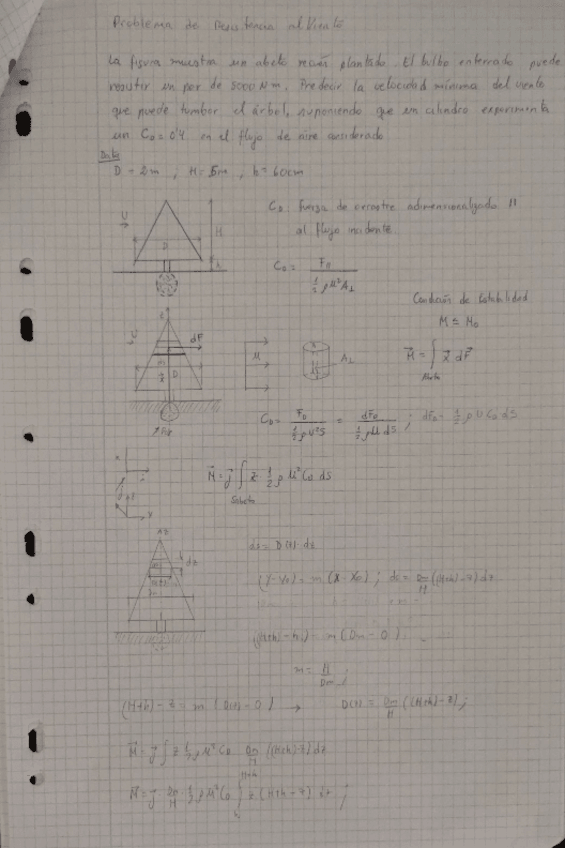 Problema de Resistencia al Viento
La figura muestra un abeto recién plantado. El bulbo enterrado puede
resistir un par de 5000 N m. Predecir la velocidad mínima del viento
que puede tumbar el árbol, suponiendo que un cilindro experimenta
un CD = 0'4 en el flujo de aire considerado
Datos
D = 2m , H = 5m , h = 60cm
CD: fuerza de arrastre adimensionalizado
al flujo incidente
U
D
H
h
CD = FD / ½ρU²A⊥
Condición de estabilidad
M ≤ M0
U
dF
D
U
A⊥
M = ∫ z dF
CD = FD / ½ρU²S = dFD / ½ρU dS ; dFD = ½ρU CD dS
M = j ∫ z ½ρU²CD dS
ds = D(z) dz
dz
(Y-Y0) = m (X-X0) ; ds = Dm/H ((H+h)-z) dz
m = H/Dm ;
(H+h) - z = m (D(z) - 0) → D(z) = Dm/H ((H+h)-z) ;
M = j ∫ z ½ρU²CD Dm/H ((H+h)-z) dz
M = j Dm/H ½ρU²CD ∫ z (H+h-z) dz ;